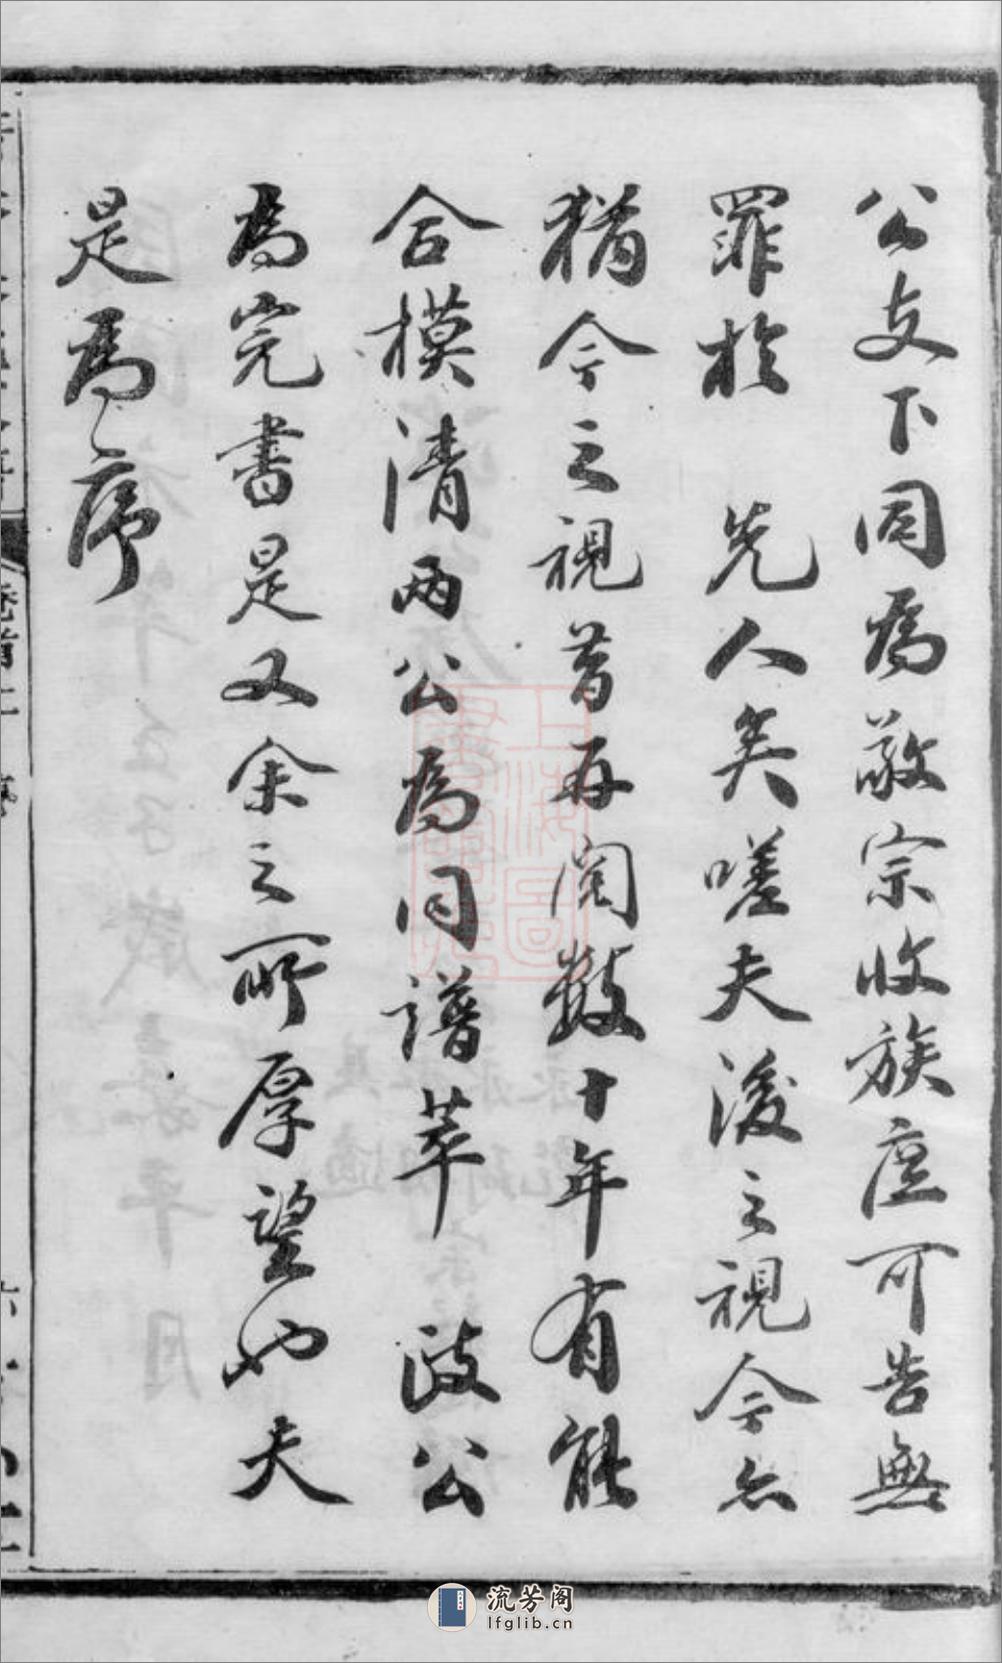 公支下同爲敬宗收族庶可告無
罪於 先人矣嗟夫後之視今亦
猶今之視昔再閱數十年有能
合模清兩公爲同譜萃 政公
爲完書是又余之所厚望也夫
是爲序
上海圖書館藏
流芳阁
lfglib.cn